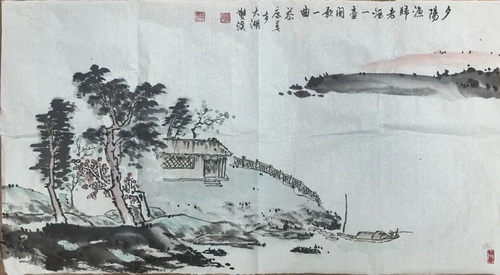 夕陽漁歸老酒一壺閑歌一曲
大湖
雙溪